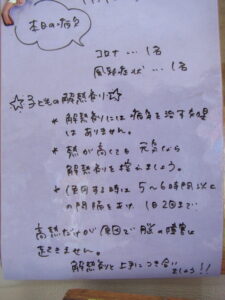 本日の病欠
コロナ … 1名
風邪症状 … 1名
☆子どもの解熱剤☆
* 解熱剤には病気を治す効果
はありません。
* 熱が高くても 元気なら
解熱剤を控えましょう。
* 使用する時は 5~6時間以上
の間隔をあけ 1日2回まで
高熱だけが原因で脳の障害は
起きません。
解熱剤と上手につき合い
ましょう!!